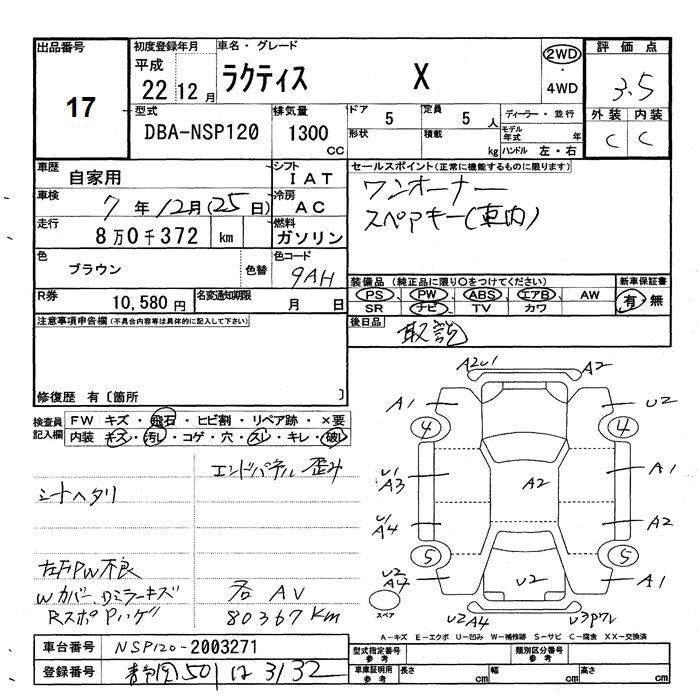 出品番号
17
初度登録年月
平成
22 12月
車名・グレード
ラクティス X
2WD
・
4WD
評価点
3.5
外装 内装
C C
型式
DBA-NSP120
排気量
1300
CC
ドア 5
形状
定員 5 人
積載 kg
ディーラー・並行
モデル年式 年
ハンドル 左・右
車歴
自家用
シフト
I AT
車検
7年12月(25日)
冷房
AC
走行
8万0千372 km
燃料
ガソリン
色
ブラウン
色替
色コード
9AH
R券
10,580円
名変通知期限
月 日
セールスポイント(正常に機能するものに限ります)
ワンオーナー
スペアキー(車内)
装備品(純正品に限り○をつけてください)
PS、 PW、 ABS、 エアB、 AW
SR ナビ TV カワ
新車保証書
有・無
後日品
取説
注意事項申告欄(不具合内容等は具体的に記入して下さい)
修復歴 有〔箇所 〕
検査員記入欄
FW キズ・飛石・ヒビ割・リペア跡・×要
内装 キズ・汚レ・コゲ・穴・スレ・キレ・破レ
エンドパネル歪み
シートヘタリ
左右PW不良
Wカバー、Dミラーキズ
RスポPハゲ
名AV
80367Km
A2U1 A2
A1 U2
4 4
U1
A3 A1
A2
U1
A4 A2
5 5
U2
A4 U2 A1
スペア
U2A4
A-キズ E-エクボ U-凹み W-補修跡 S-サビ C-腐食 XX-交換済
車台番号
NSP120-2003271
登録番号
静岡501 は 3132
型式指定番号
参考
類別区分番号
参考
車庫証明用
参考
長さ cm
幅 cm
高さ cm